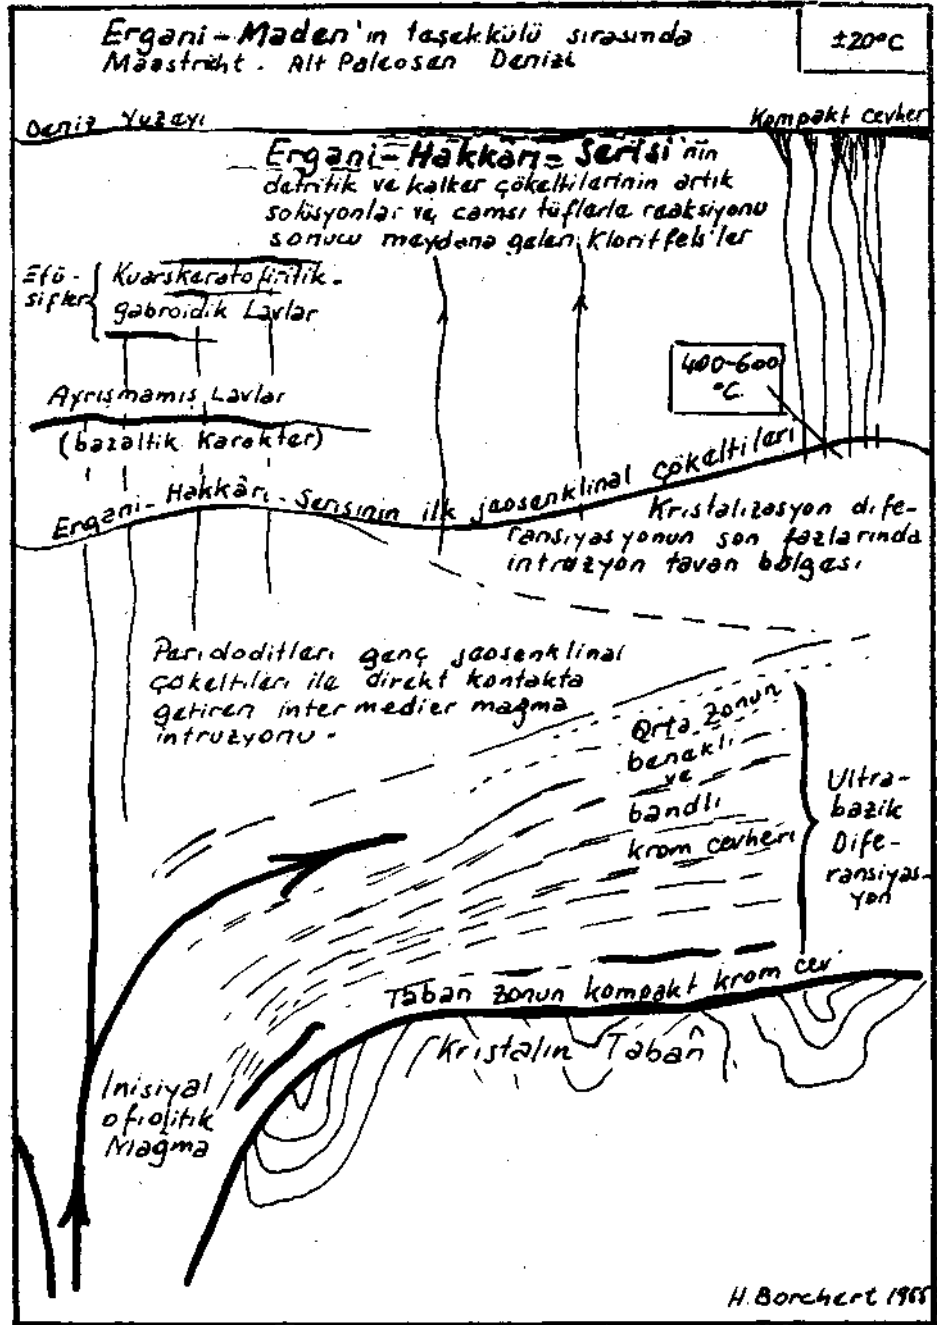 Ergani-Maden'in taşekkülü sırasında
Maastriht. Alt Paleosen Denizi
±20°C
Deniz Yuzayı
Kompakt cevher
Ergani-Hakkâri-Serisi'nin
detritik ve kalker çökeltilerinin artık
solüsyonlar ve camsı tüflarla reaksiyonu
sonucu meydana gelen Kloritfels'ler
Efü-
sifler
Kuarskeratofiritik-
gabroidik Lavlar
400-600
°C.
Ayrışmamış Lavlar
(bazaltik Karakter)
Ergani-Hakkâri-Serisinin ilk jaosenklinal çökeltileri
Kristalizasyon dife-
ransiyasyonun son fazlarında
intruzyon tavan bölgesi
Peridoditleri genç jaosenklinal
çökeltileri ile direkt kontakta
getiren intermedier mağma
intruzyonu-
Orta zonun
benekli
ve
bandlı
krom cevheri
Ultra-
bazik
Dife-
ransiyas-
yon
Taban zonun kompakt krom cev.
Kristalin Taban
Inisiyal
ofiolitik
Mağma
H. Borchert 1955